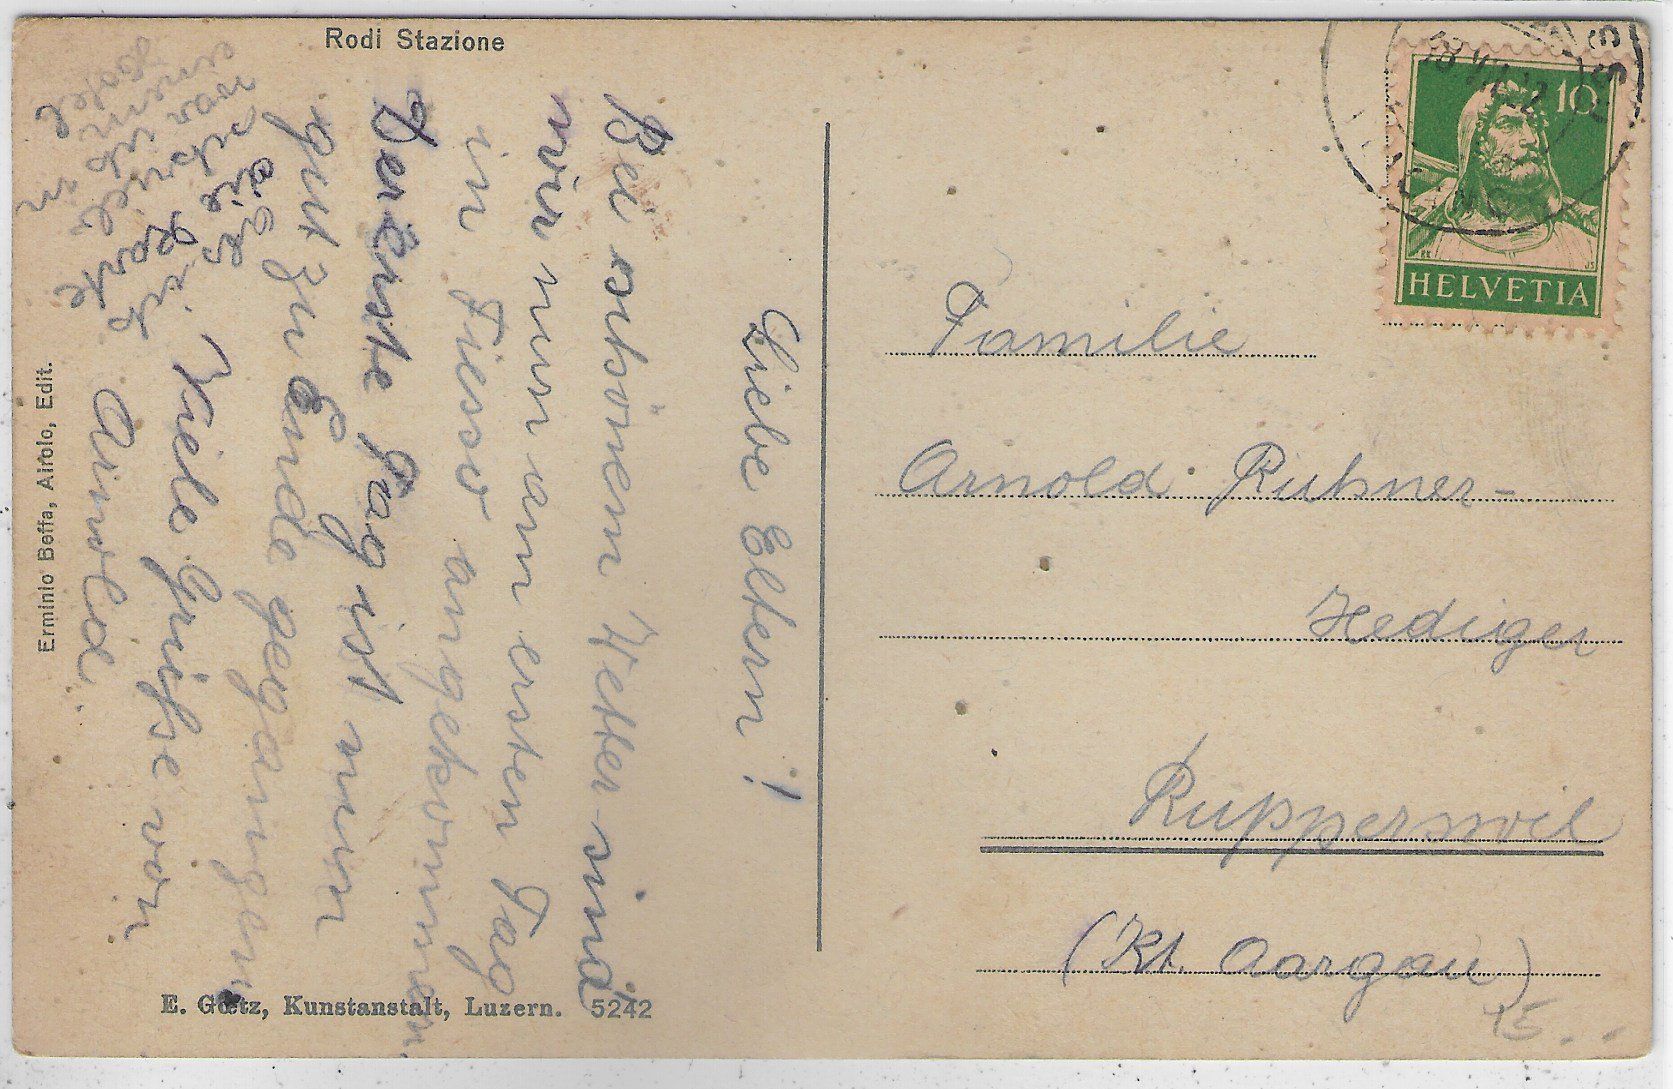 Rodi Stazione
Liebe Eltern!
Bei schönem Wetter sind
wir nun am ersten Tag
in Fiesso angekommen
Der Erste Tag ist nun
gut zu Ende gegangen
Viele Grüsse von
Arnold.
als ich
die Karte
schrieb
war ich in
Erminio Beffa, Airolo, Edit.
E. Goetz, Kunstanstalt, Luzern. 5242
10
HELVETIA
Familie
Arnold Ruhner-
Hediger
Rupperswil
(Kt. Aargau)
15